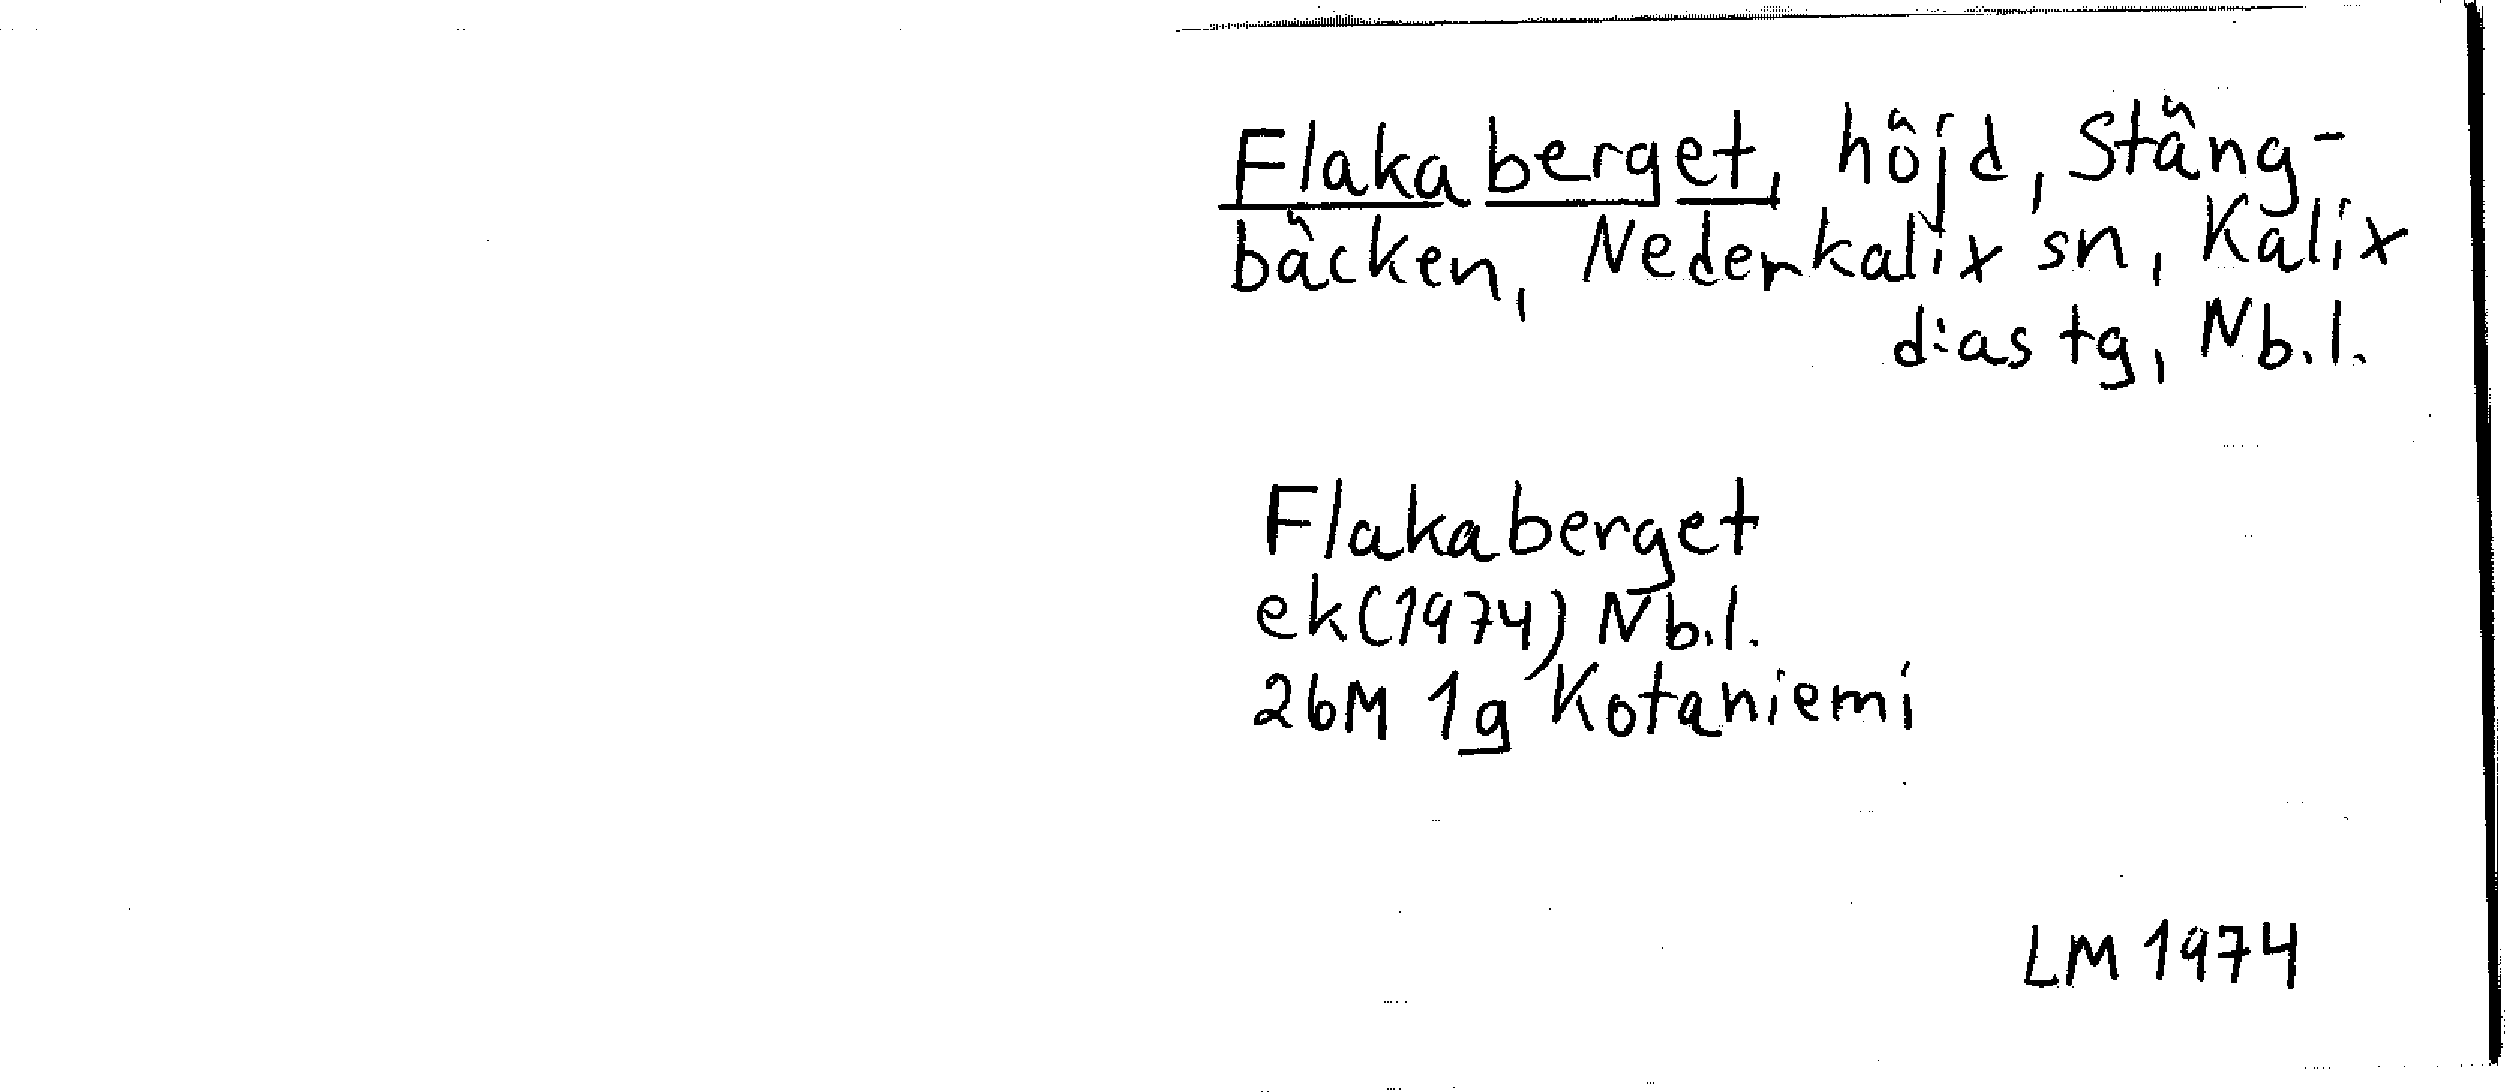 Flakaberget, höjd, Stäng-
bäcken, Nederkalix sn, Kalix
d:as tg, Nb.l.
Flakaberget
ek(1974) Nb.l.
26M 1g Kotaniemi
LM 1974